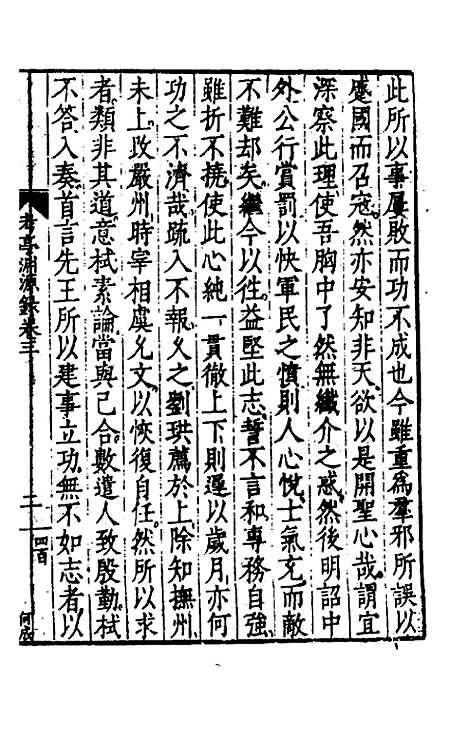 此所以事屢敗而功不成也今雖重爲羣邪所誤以
蹙國而召寇然亦安知非天欲以是開聖心哉謂宜
深察此理使吾胸中了然無纖介之惑然後明詔中
外公行賞罰以快軍民之憤則人心悅士氣充而敵
不難却矣繼今以往益堅此志誓不言和専務自強
雖折不撓使此心純一貫徹上下則遲以歲月亦何
功之不濟哉疏入不報久之劉珙薦於上除知撫州
未上改嚴州時宰相虞允文以恢復自任然所以求
者類非其道意栻素論當與己合數遣人致殷勤栻
不答入奏首言先王所以建事立功無不如志者以
考亭淵源錄卷三
二
四百